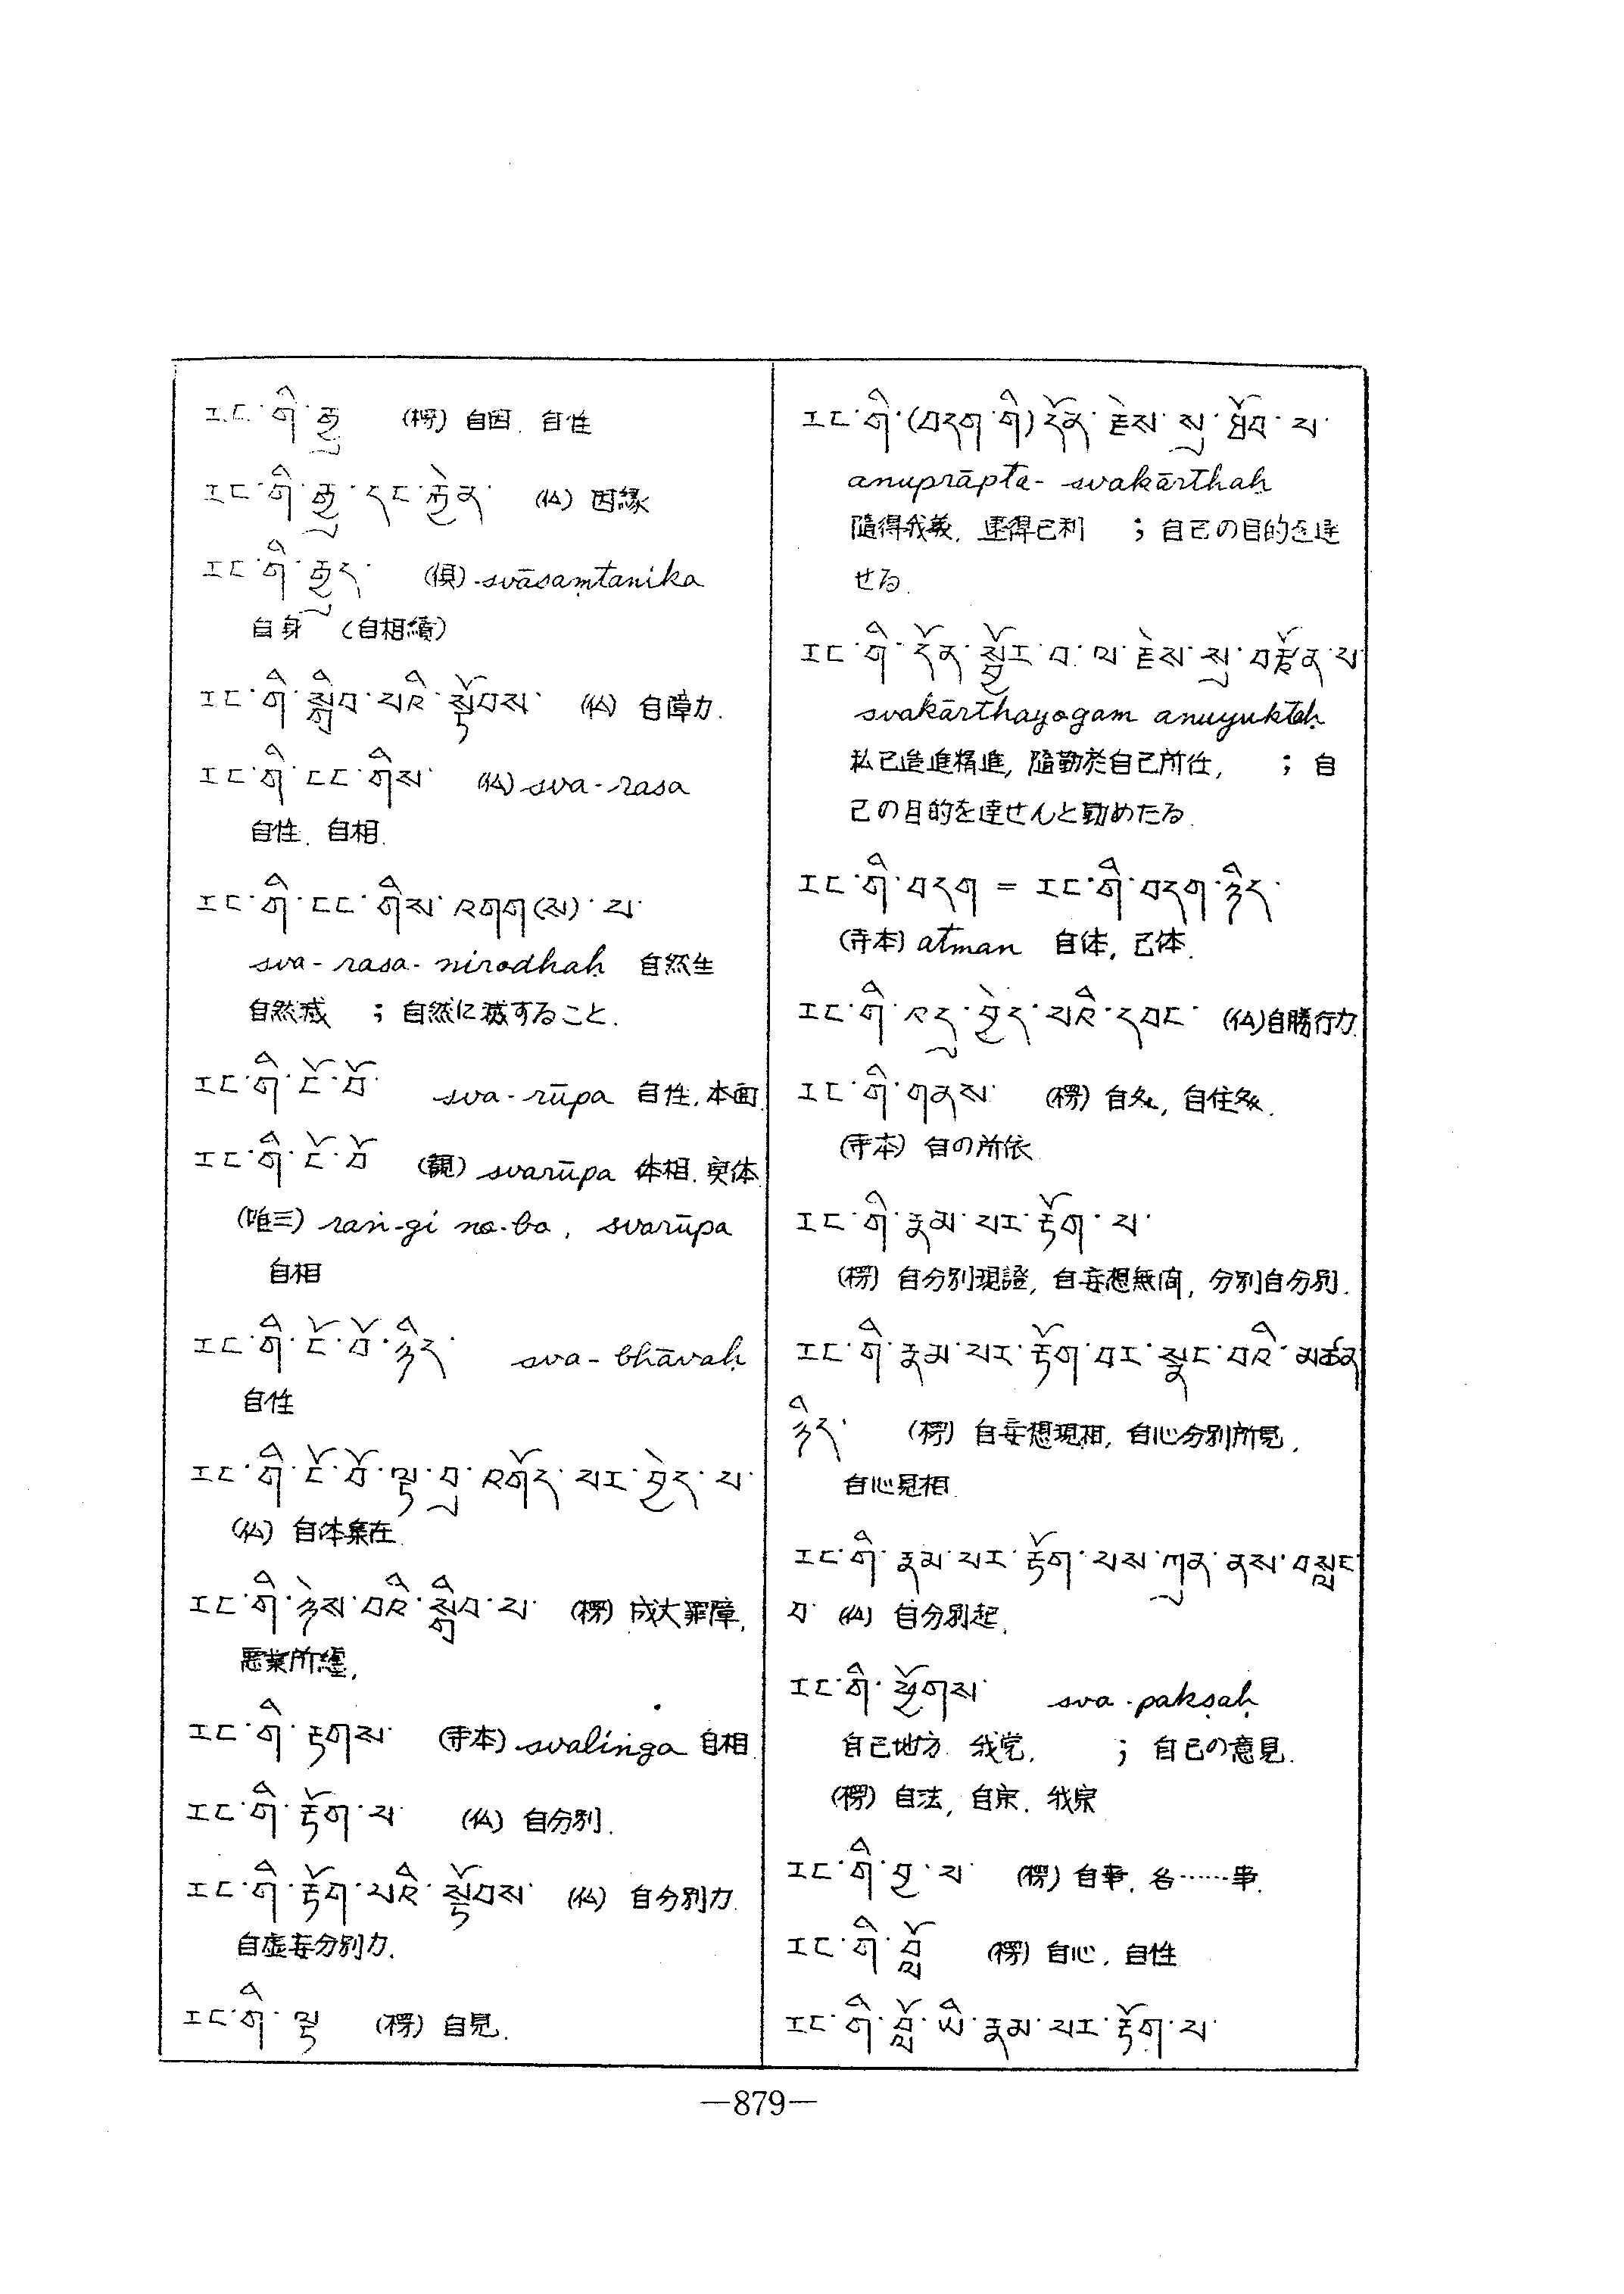 རང་གི་རྒྱུ (楞) 自因. 自性
རང་གི་རྒྱུ་དང་རྐྱེན་ (仏) 因縁
རང་གི་རྒྱུད་ (倶) svāsaṃtanika
自身 (自相續)
རང་གི་སྒྲིབ་པའི་སྟོབས་ (仏) 自障力.
རང་གི་ངང་གིས་ (仏) sva-rasa
自性. 自相.
རང་གི་ངང་གིས་འགག(ས)་པ་
sva-rasa-nirodhaḥ 自然生
自然滅 ; 自然に滅すること.
རང་གི་ངོ་བོ་ sva-rūpa 自性. 本面.
རང་གི་ངོ་བོ (観) svarūpa 体相. 実体.
(唯三) raṅ-gi ṅo-bo, svarūpa
自相
རང་གི་ངོ་བོ་ཉིད་ sva-bhāvaḥ
自性
རང་གི་ངོ་བོ་ལྟ་བུ་འགོད་པར་བྱེད་པ་
(仏) 自体集在.
རང་གི་ཉེས་པའི་སྒྲིབ་པ་ (楞) 成大罪障,
悪業所纒,
རང་གི་རྟགས་ (寺本) svalinga 自相.
རང་གི་རྟོག་པ་ (仏) 自分別.
རང་གི་རྟོག་པའི་སྟོབས་ (仏) 自分別力.
自虚妄分別力.
རང་གི་ལྟ (楞) 自見.
རང་གི་(བདག་གི)དོན་རྗེས་སུ་ཐོབ་པ་
anuprāpta-svakārthaḥ
隨得我義. 逮得己利 ; 自己の目的を達
せる.
རང་གི་དོན་སྦྱོར་བ་ལ་རྗེས་སུ་བརྩོན་པ
svakārthayogam anuyuktaḥ
私己造進精進, 隨勤於自己所作, ; 自
己の目的を達せんと勤めたる.
རང་གི་བདག = རང་གི་བདག་ཉིད་
(寺本) atman 自体, 己体.
རང་གི་འདུ་བྱེད་པའི་དབང་ (仏) 自勝行力.
རང་གི་གནས་ (楞) 自処, 自住処.
(寺本) 自の所依
རང་གི་རྣམ་པར་རྟོག་པ་
(楞) 自分別現證, 自妄想無間, 分別自分別.
རང་གི་རྣམ་པར་རྟོག་པར་སྣང་བའི་མཚན
ཉིད་ (楞) 自妄想現相, 自心分別所見,
自心見相.
རང་གི་རྣམ་པར་རྟོག་པས་ཀུན་ནས་བསླང
བ་ (仏) 自分別起.
རང་གི་ཕྱོགས་ sva-pakṣaḥ
自己地方. 我党. ; 自己の意見.
(楞) 自法, 自宗. 我宗
རང་གི་བྱ་བ་ (楞) 自事. 各……事.
རང་གི་བློ (楞) 自心, 自性
རང་གི་བློ་ཡི་རྣམ་པར་རྟོག་པ་
—879—